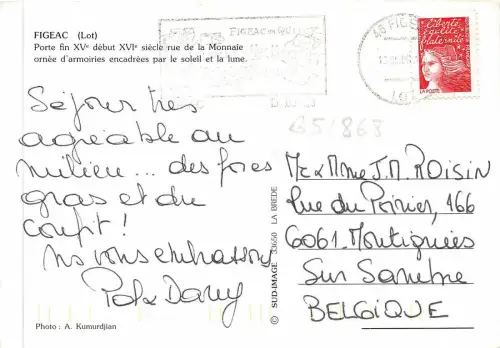 FIGEAC (Lot)
Porte fin XVe début XVIe siècle rue de la Monnaie
ornée d'armoiries encadrées par le soleil et la lune.
FIGEAC
46 FIGEAC
LOT
liberté
égalité
fraternité
LA POSTE
B51868
Séjour très
agréable au
milieu... des foies
gras et du
confit!
Ns vous embrassons
Pol & Dany
Mr & Mme J.M. ROISIN
Rue du Poirier, 166
6061 Montignies
Sur Sambre
BELGIQUE
© SUD-IMAGE 33650 LA BREDE
Photo : A. Kumurdjian